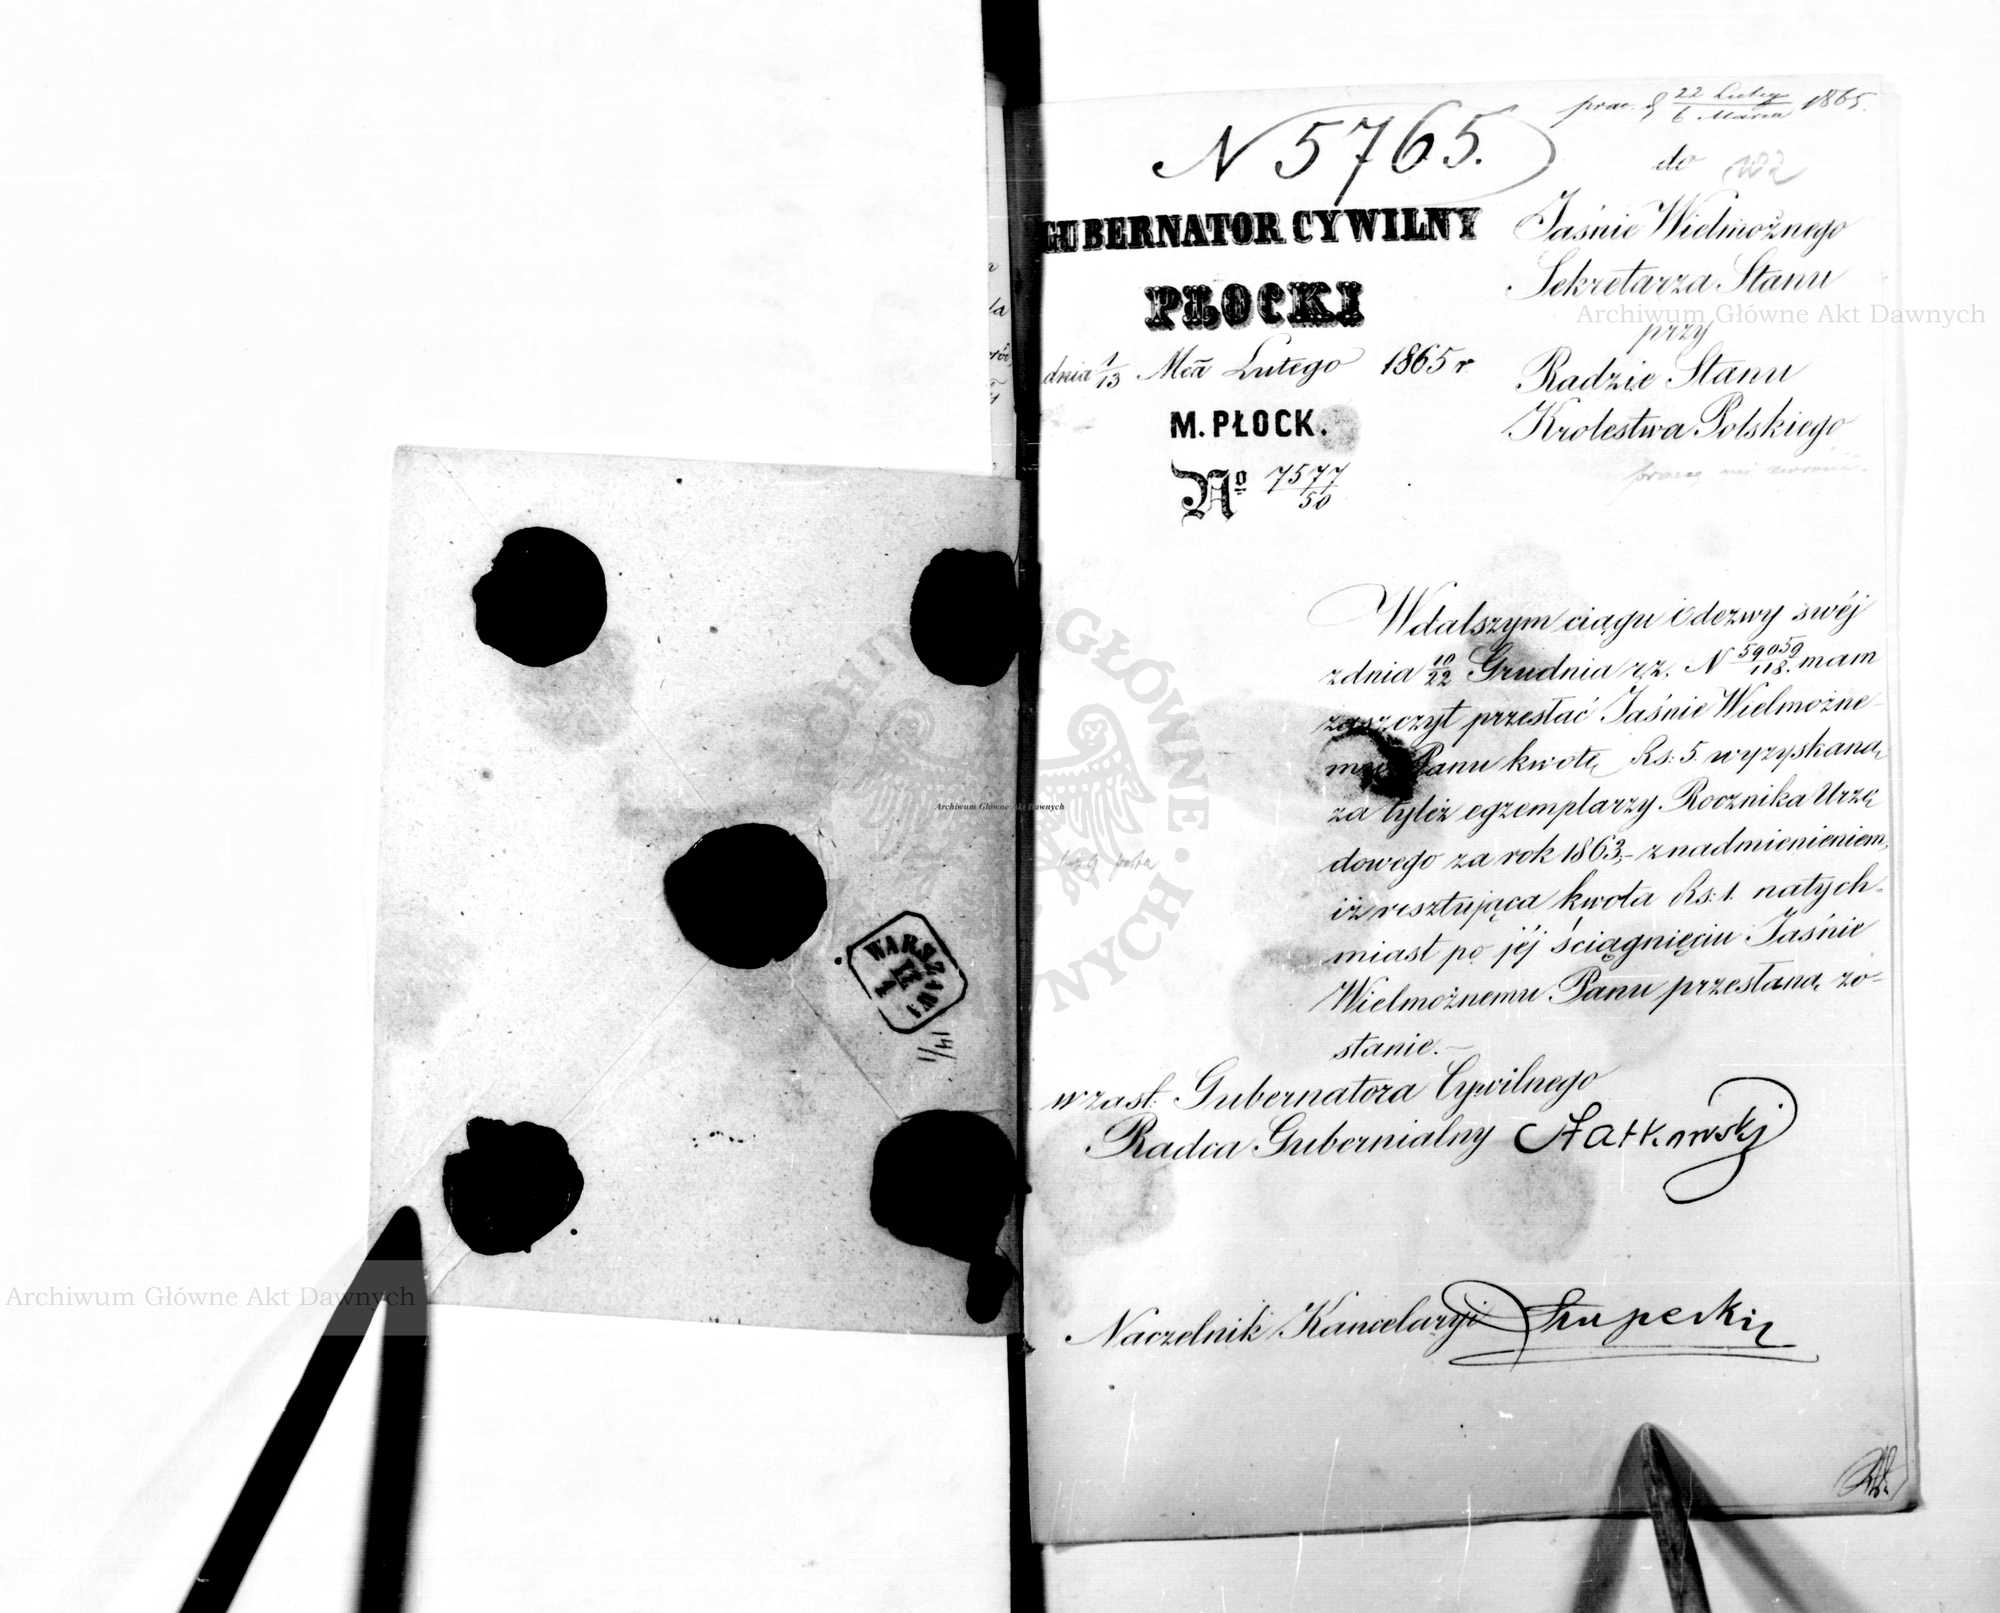 N 5765.
22 Luty
6 Marca 1865.
do
GUBERNATOR CYWILNY
PŁOCKI
dnia 1/13 Mca Lutego 1865 r
M. PŁOCK.
No 7577/50
Jaśnie Wielmożnego
Sekretarza Stanu
przy
Radzie Stanu
Krolestwa Polskiego
W dalszym ciągu Odezwy swéj
z dnia 10/22 Grudnia r.z. N 59059/118. mam
zaszczyt przesłać Jaśnie Wielmożne-
mu Panu kwotę Rs: 5. wyzyskaną
za tyleż egzemplarzy Rocznika Urzę
dowego za rok 1863,- z nadmienieniem,
iż resztująca kwota Rs: 1. natych-
miast po jéj ściągnięciu Jaśnie
Wielmożnemu Panu przesłaną zo-
stanie.-
w zast. Gubernatora Cywilnego
Radca Gubernialny
Naczelnik Kancelaryi
WARSZAWA
14/1
Archiwum Główne Akt Dawnych
Archiwum Główne Akt Dawnych
Archiwum Główne Akt Dawnych